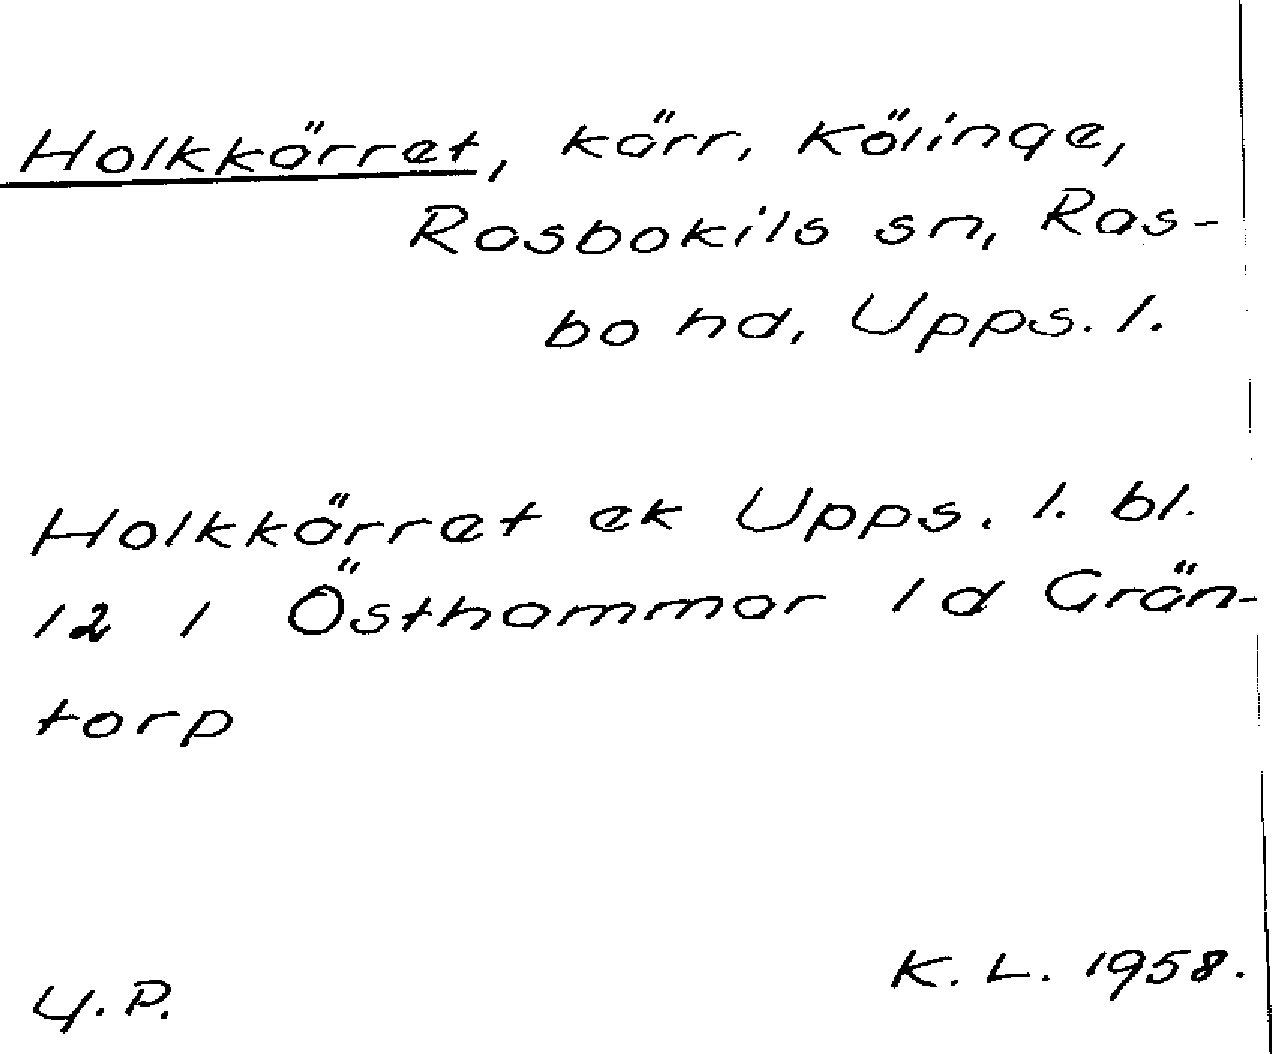 Holkkärret, kärr, Kölinge,
Rasbokils sn, Ras-
bo hd, Upps. l.
Holkkärret ek Upps. l. bl.
12 1 Östhammar 1d Grän-
torp
K. L. 1958.
Y. P.